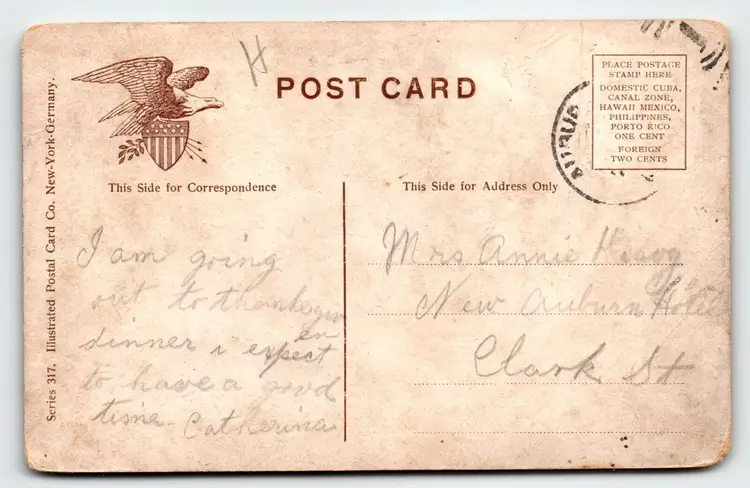 H
POST CARD
PLACE POSTAGE
STAMP HERE
DOMESTIC CUBA,
CANAL ZONE,
HAWAII MEXICO,
PHILIPPINES,
PORTO RICO
ONE CENT
FOREIGN
TWO CENTS
AUBUR
This Side for Correspondence
This Side for Address Only
Series 317. Illustrated Postal Card Co. New-York-Germany.
I am going
out to thanksgiv
en
dinner i expect
to have a good
time Catherina
Mrs Annie
New Auburn Hotel
Clark St